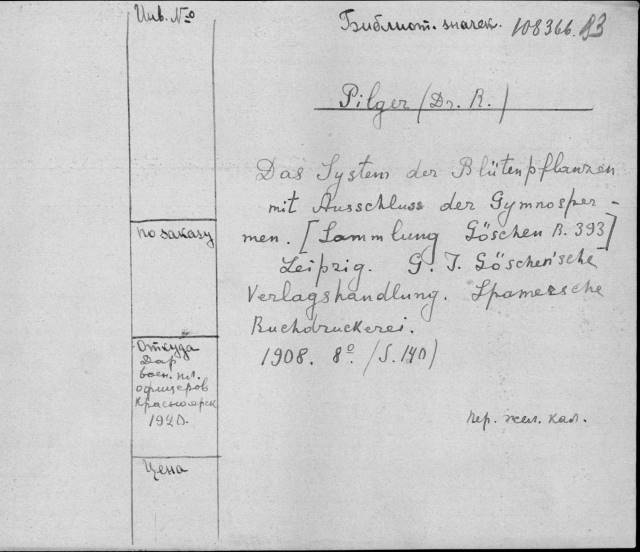 Инв. №
Библиот. значек. 108366. В3
Pilger (Dr. R.)
Das System der Blütenpflanzen
mit Ausschluss der Gymnosper-
men. [Sammlung Göschen B. 393]
Leipzig. G. J. Göschen'sche
Verlagshandlung. Spamersche
Buchdruckerei.
1908. 8º. (S. 140)
по заказу
Откуда
Дар
воен. пл.
офицеров
Красноярск
1920.
Цена
пер. жел. кал.